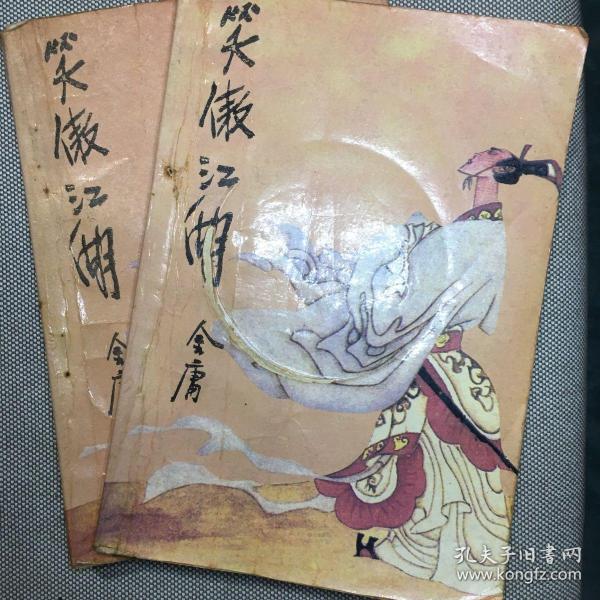 笑傲江湖
金庸
笑傲江湖
金庸
孔夫子旧書网
www.kongfz.com